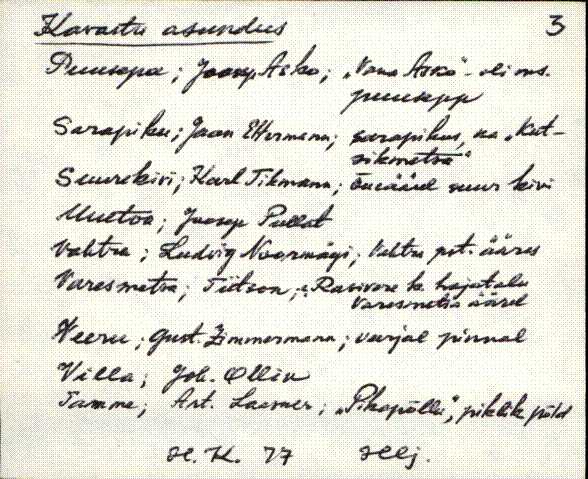 Kavastu asundus 3
Puusepa; Joosep Asko; „Vana Asko" - oli m.s.
puusepp
Sarapiku; Jaan Ellermann; sarapikus, ka „Kit-
sikmetsa"
Suurekivi; Karl Tikmann; õueääred suur kivi
Uuetoa; Joosep Pullat
Vahtra; Ludvig Noormägi; Vahtra pst. ääres
Varesmetsa; Tiitson; Rasivere k. hajatalu
Varesmetsa ääred
Veeru; Gust. Zimmermann; veerjal pinnal
Villa; Joh. Ollin
Tamme; Art. Laasner; „Pikapõllu", piklik põld
H. K. 77 selj.